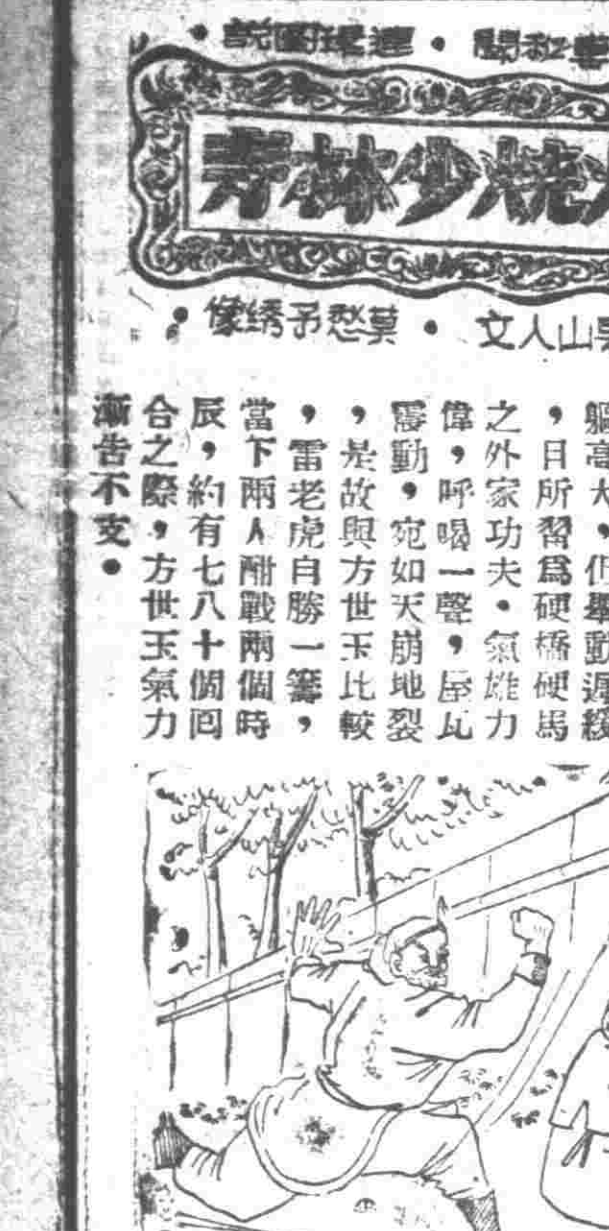 秘聞・連環圖説・
燒少林寺
山人文・莫愁予綉像・
軀高大，但舉動遲緩
，日所習爲硬橋硬馬
之外家功夫・氣雄力
偉，呼喝一聲，屋瓦
震動，宛如天崩地裂
，是故與方世玉比較
，雷老虎自勝一籌，
當下兩人酣戰兩個時
辰，約有七八十個囘
合之際，方世玉氣力
漸告不支・